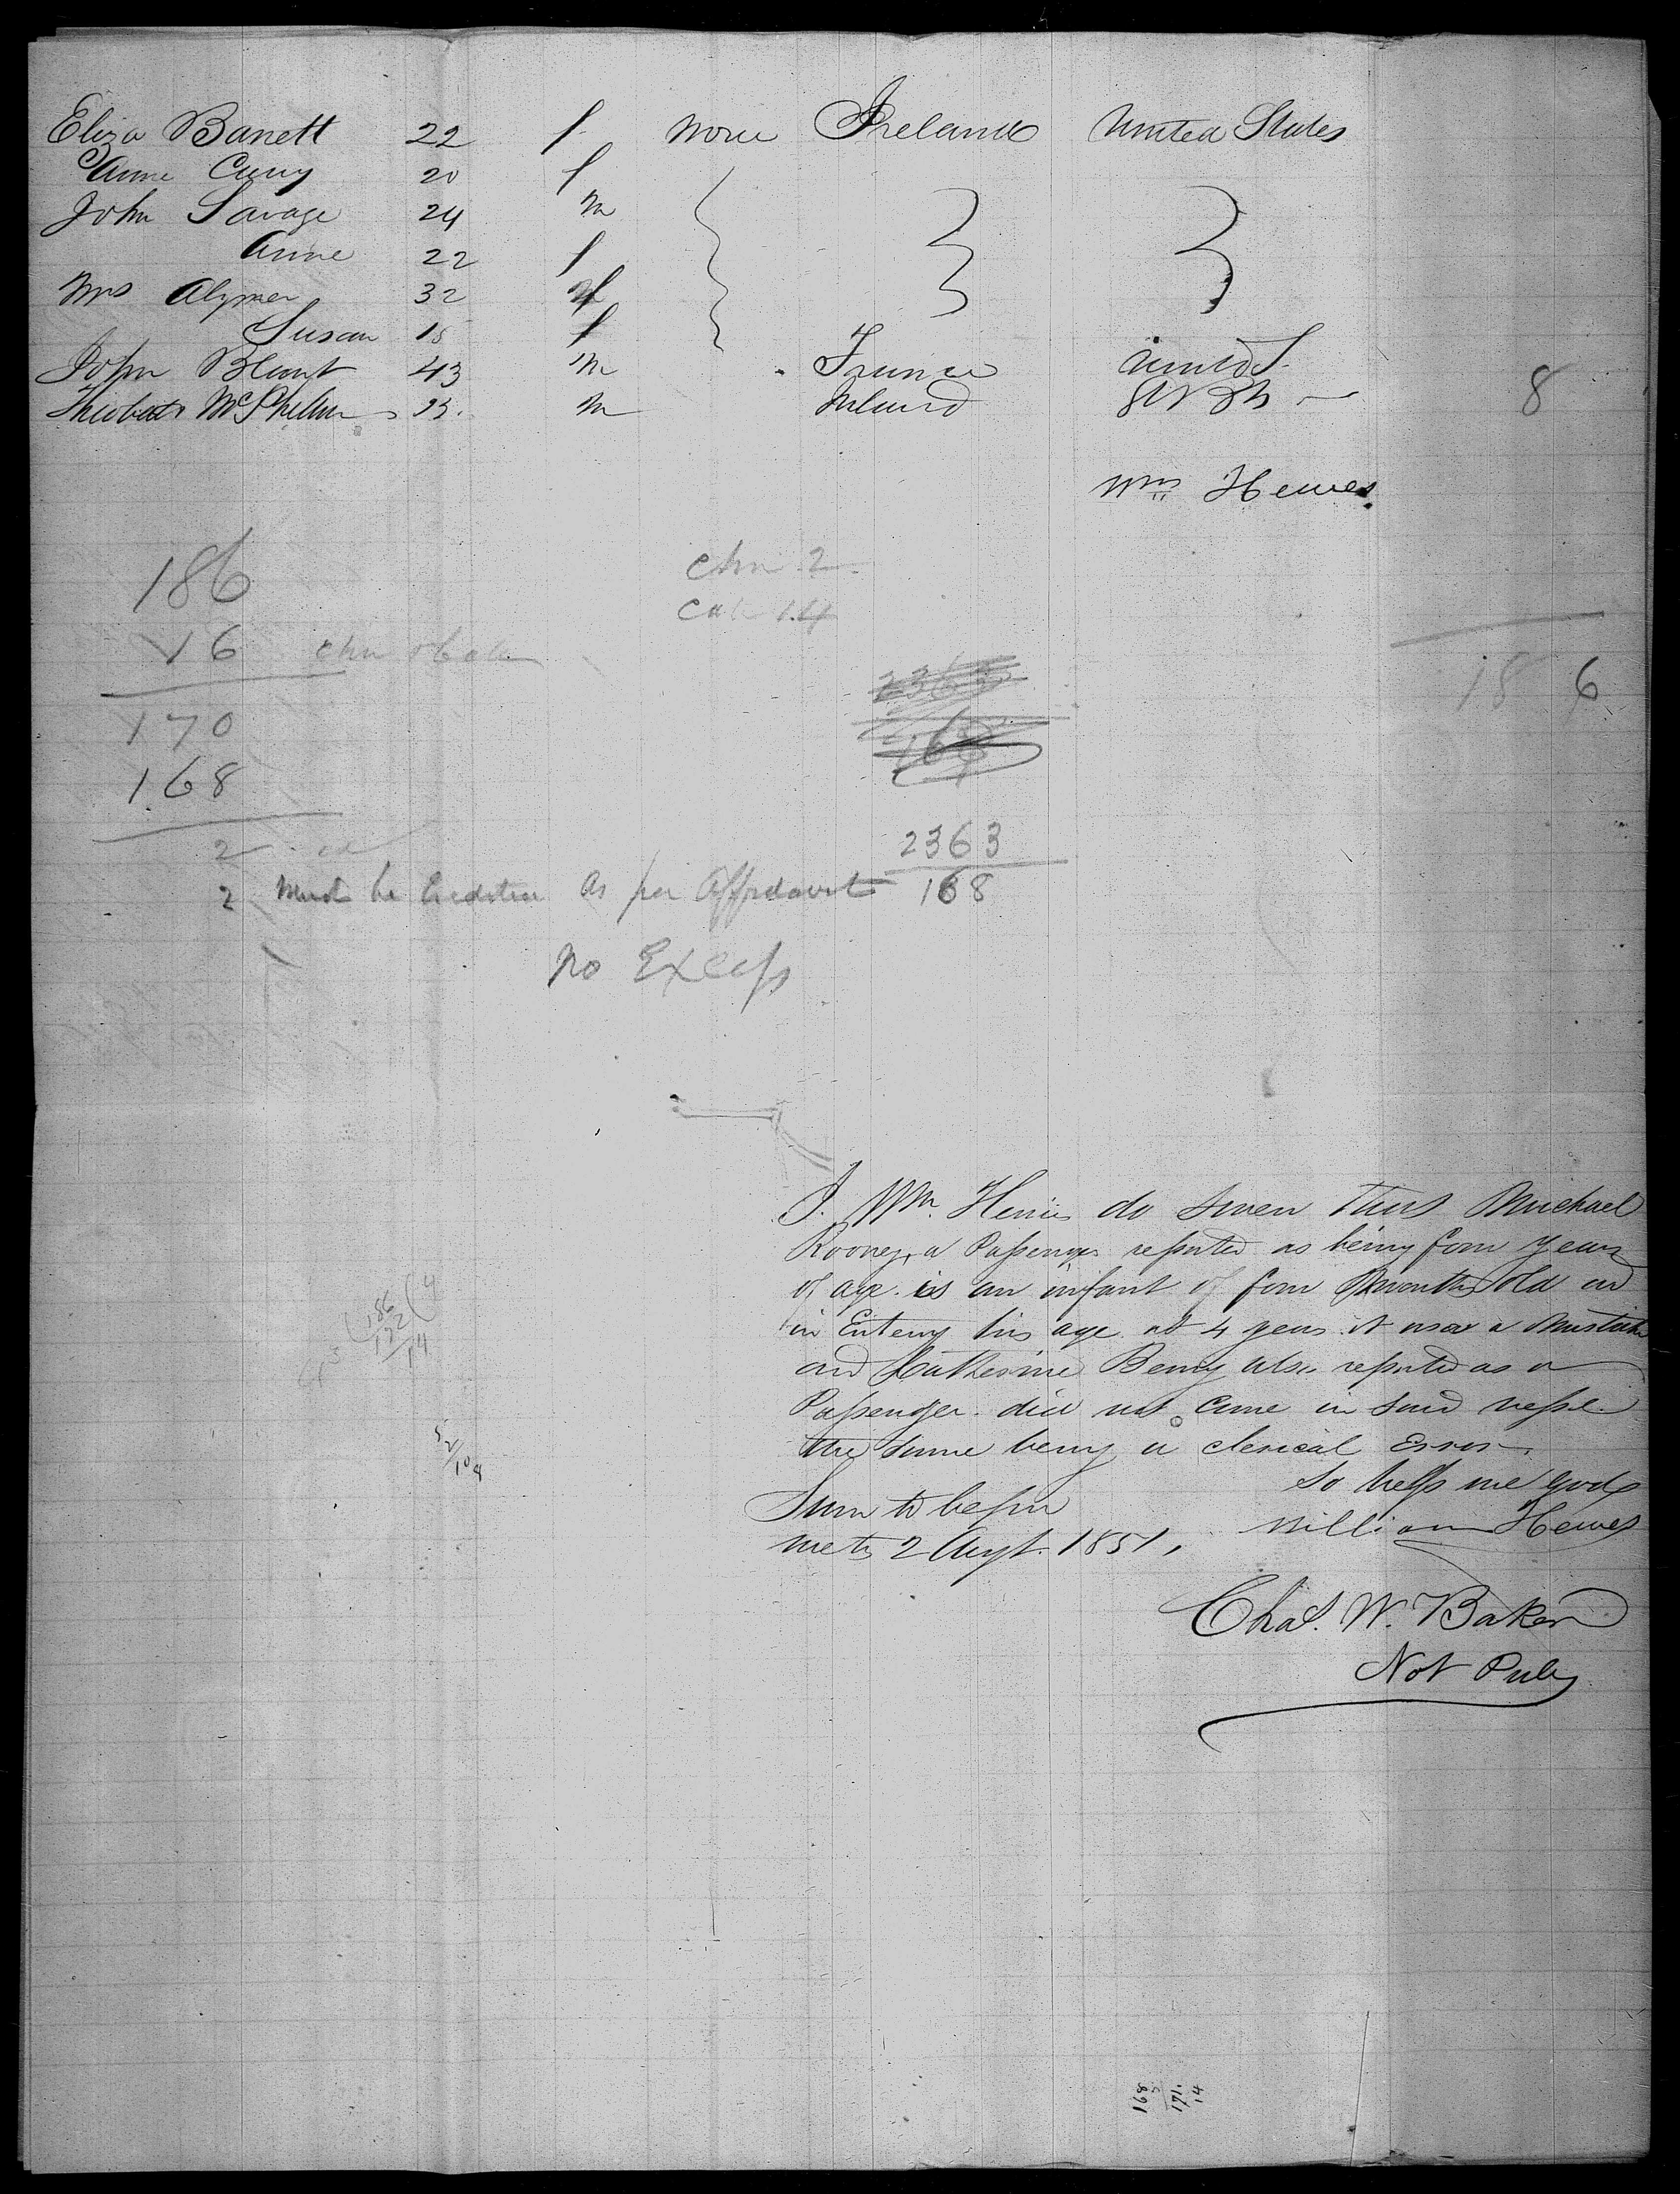 Eliza Barrett 22 f none Ireland United States
Anne Curry 20 f
John Savage 24 m
Anne 22 f
Mrs Alymer 32 f
Susan 18 f
John Blunt 43 m France United S.
McPhelim m Ireland 8
Wm Hewes
186
16 chn
170
168
2
chn 2
14
2363
168
18 6
2363
168
2 Must be Credited As per Affidavit
No Excess
I. Wm. Hewes do swear that Michael
Rooney, a Passenger reported as being four years
of age. is an infant of four months old and
in Entering his age at 4 years it was a mistake
and Catherine Berry also reported as a
Passenger did not come in said vessel
the same being a clerical Error.
So help me god
William Hewes
Sworn to before
me this 2 Augt. 1851,
Chas. W. Baker
Not Pub
186
172
14
4
52/104
168
171
14